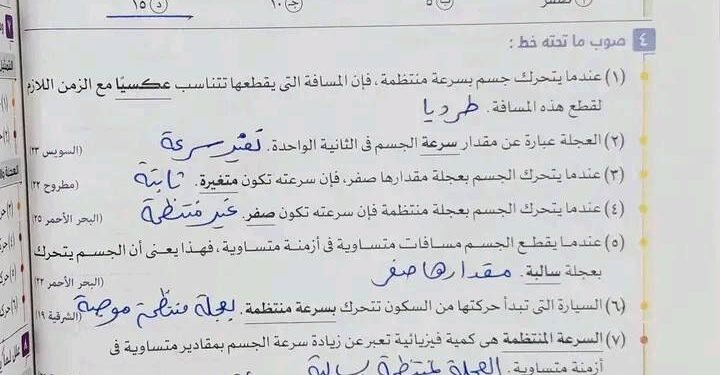 ١٥ (د) ١٠ (ج) ٥ (ب) صفر
٤ صوب ما تحته خط :
(١) عندما يتحرك جسم بسرعة منتظمة، فإن المسافة التى يقطعها تتناسب عكسيًا مع الزمن اللازم
لقطع هذه المسافة. طرديا
(٢) العجلة عبارة عن مقدار سرعة الجسم فى الثانية الواحدة. تغير سرعة (السويس ٢٣)
(٣) عندما يتحرك الجسم بعجلة مقدارها صفر، فإن سرعته تكون متغيرة. ثابتة (مطروح ٢٢)
(٤) عندما يتحرك الجسم بعجلة منتظمة فإن سرعته تكون صفر. غير منتظمة (البحر الأحمر ٢٥)
(٥) عندما يقطع الجسم مسافات متساوية فى أزمنة متساوية، فهذا يعنى أن الجسم يتحرك
بعجلة سالبة. مقدارها صفر (البحر الأحمر ٢٤)
(٦) السيارة التى تبدأ حركتها من السكون تتحرك بسرعة منتظمة. بعجلة منتظمة موجبة (الشرقية ١٩)
(٧) السرعة المنتظمة هى كمية فيزيائية تعبر عن زيادة سرعة الجسم بمقادير متساوية فى
أزمنة متساوية. العجلة المنتظمة